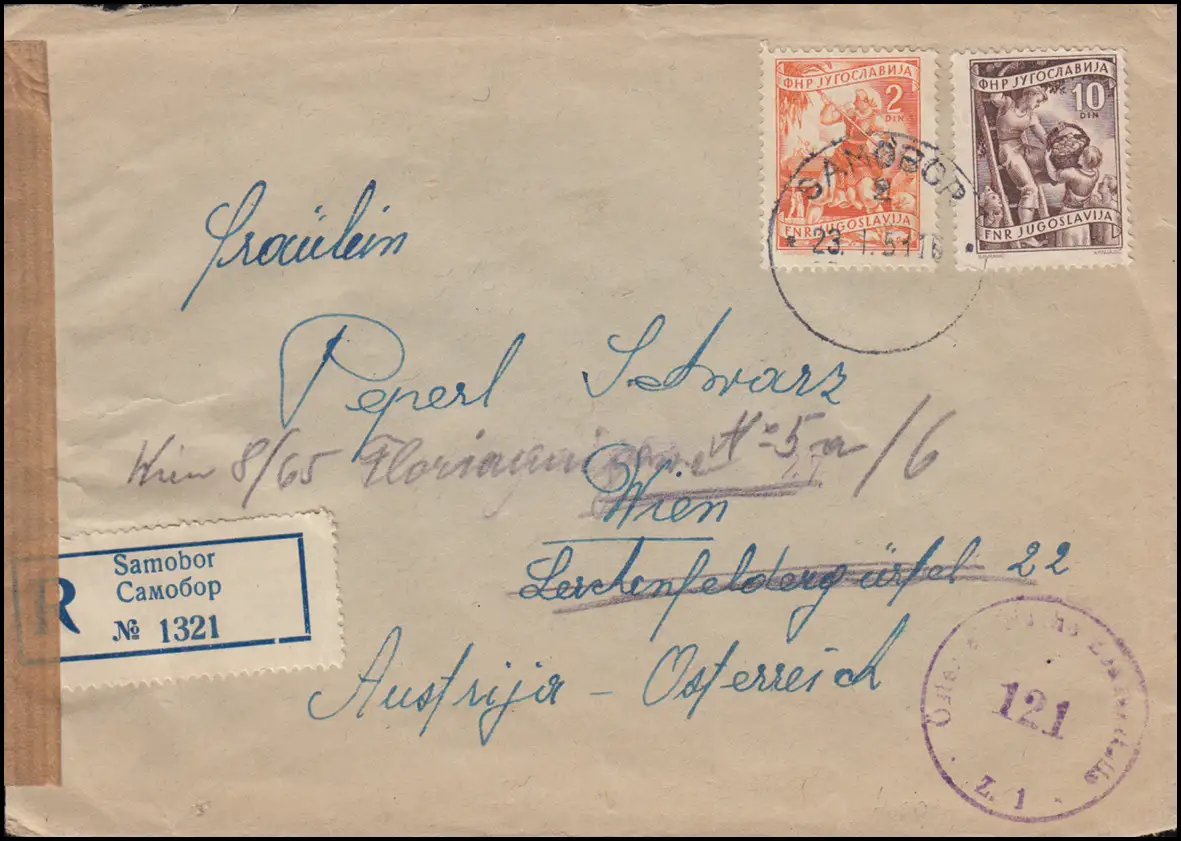 ФНР ЈУГОСЛАВИЈА
2
DIN
FNR JUGOSLAVIJA
ФНР ЈУГОСЛАВИЈА
10
DIN
FNR JUGOSLAVIJA
SAMOBOR
2
* 23. I. 51 16
Fräulein
Peperl Schwarz
Wien 8/65 No 5a/6
Wien
Lerchenfeldergürtel 22
Austrija - Österreich
R
Samobor
Самобор
№ 1321
121
Z. 1